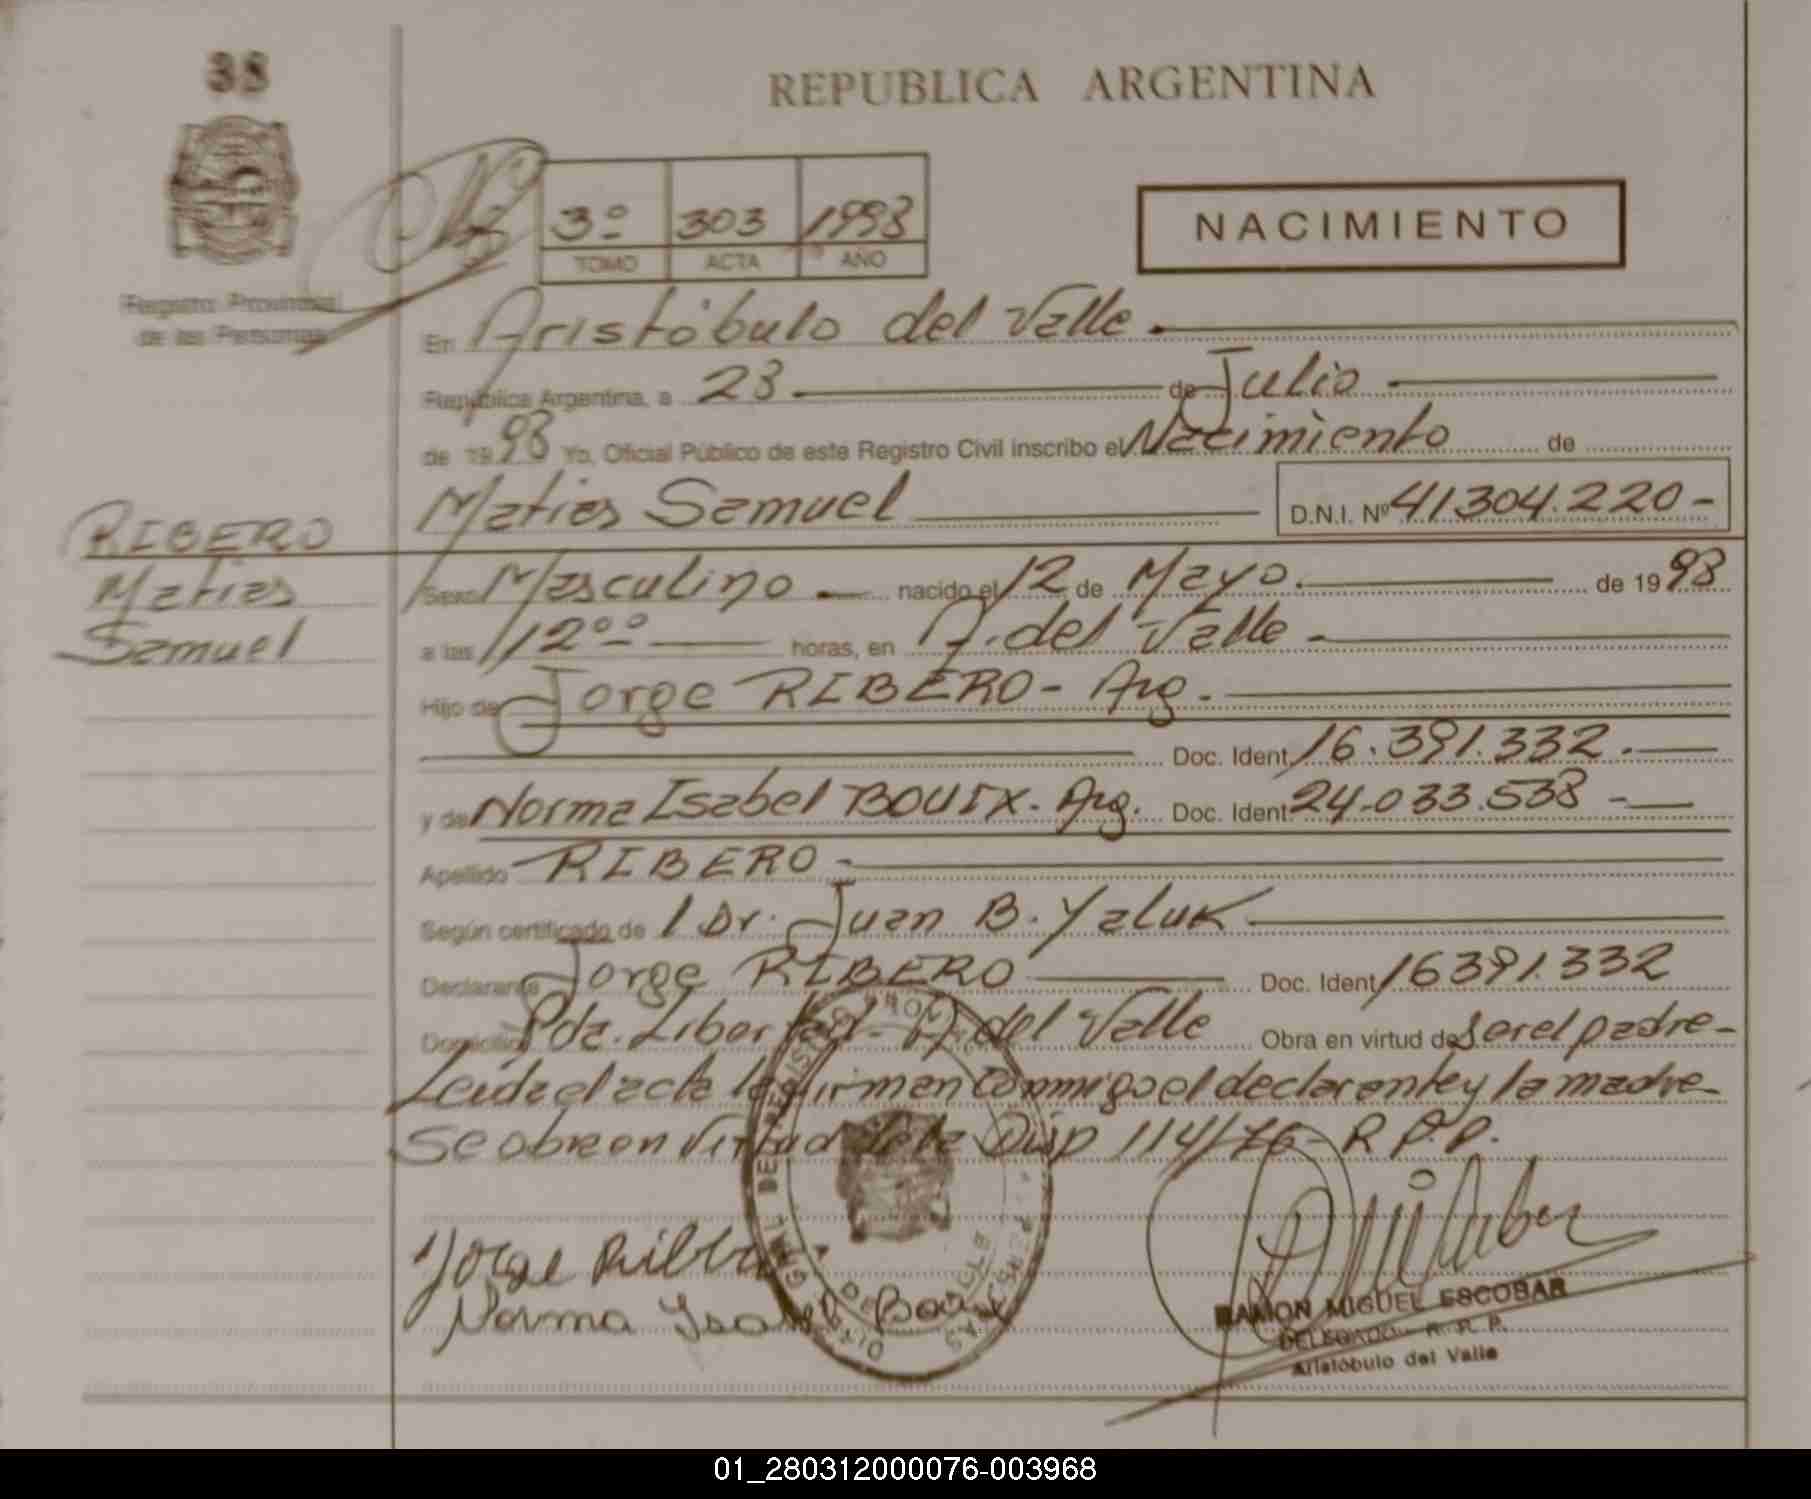 38
REPUBLICA ARGENTINA
3º 303 1998
TOMO ACTA AÑO
NACIMIENTO
Registro Provincial
de las Personas
En Aristóbulo del Valle.
República Argentina, a 23 de Julio
de 1998 Yo, Oficial Público de este Registro Civil inscribo el Nacimiento de
Matias Samuel D.N.I. Nº 41304.220-
RIBERO
Matias
Samuel
Sexo Masculino nacido el 12 de Mayo. de 1998
a las 12ºº horas, en A. del Valle -
Hijo de Jorge RIBERO - Arg.
Doc. Ident. 16.391.332.
y de Norma Isabel BOUIX. Arg. Doc. Ident. 24.033.538 -
Apellido RIBERO -
Según certificado de l Dr. Juan B. Yaluk
Declarante Jorge RIBERO Doc. Ident. 16391.332
Domicilio Pda. Libertad - A. del Valle Obra en virtud de Ser el padre -
Leida el acta la firman conmigo el declarante y la madre
Se obra en virtud de la Disp 114/76 - R.P.P.
Jorge Ribero
Norma Isabel Bouix
RAMON MIGUEL ESCOBAR
DELEGADO R. P. P.
Aristóbulo del Valle
01_280312000076-003968